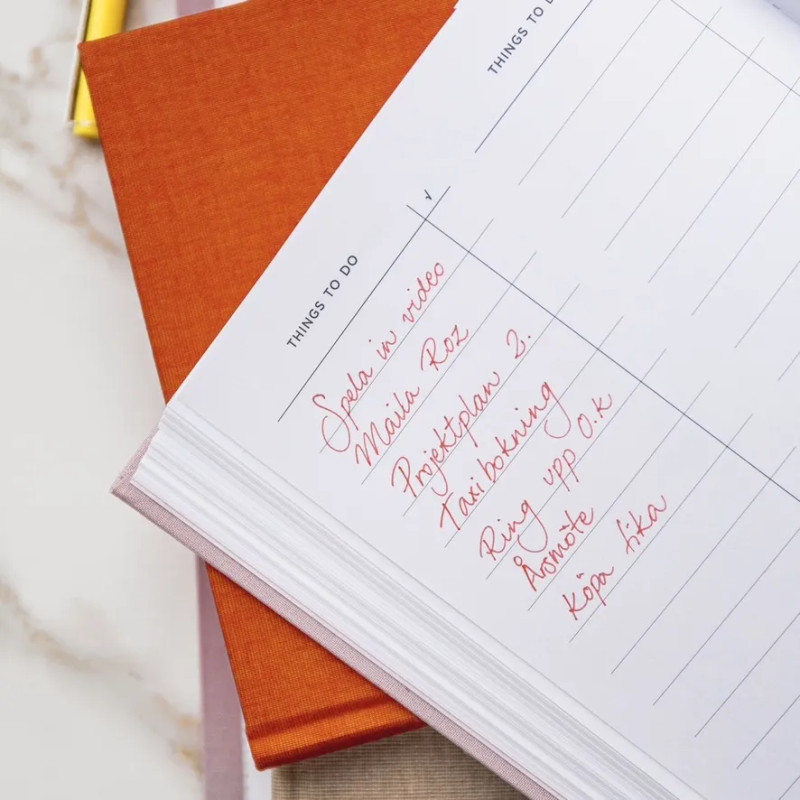 THINGS TO D
THINGS TO DO
Spela in video
Maila Roz
Projektplan 2.
Taxibokning
Ring upp O.K
Årsmöte
Köpa fika